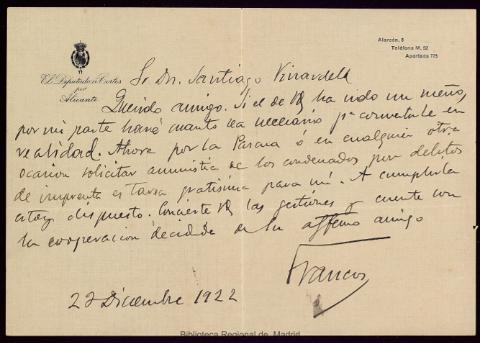 Alarcón, 5
Teléfono M. 52
Apartado 775
El Diputado á Cortes
por
Alicante
Sr. Dn. Santiago Vinardell
Querido amigo. Si el de V. ha sido un sueño,
por mi parte haré cuanto sea necesario pª convertirle en
realidad. Ahora por la Pascua ó en cualquier otra
ocasion solicitar amnistia de los condenados por delitos
de imprenta es tarea gratisima para mí. A cumplirla
estoy dispuesto. Concierte V. las gestiones y cuente con
la cooperacion decidida de su affmo amigo
Francos
22 Diciembre 1922
Biblioteca Regional de Madrid